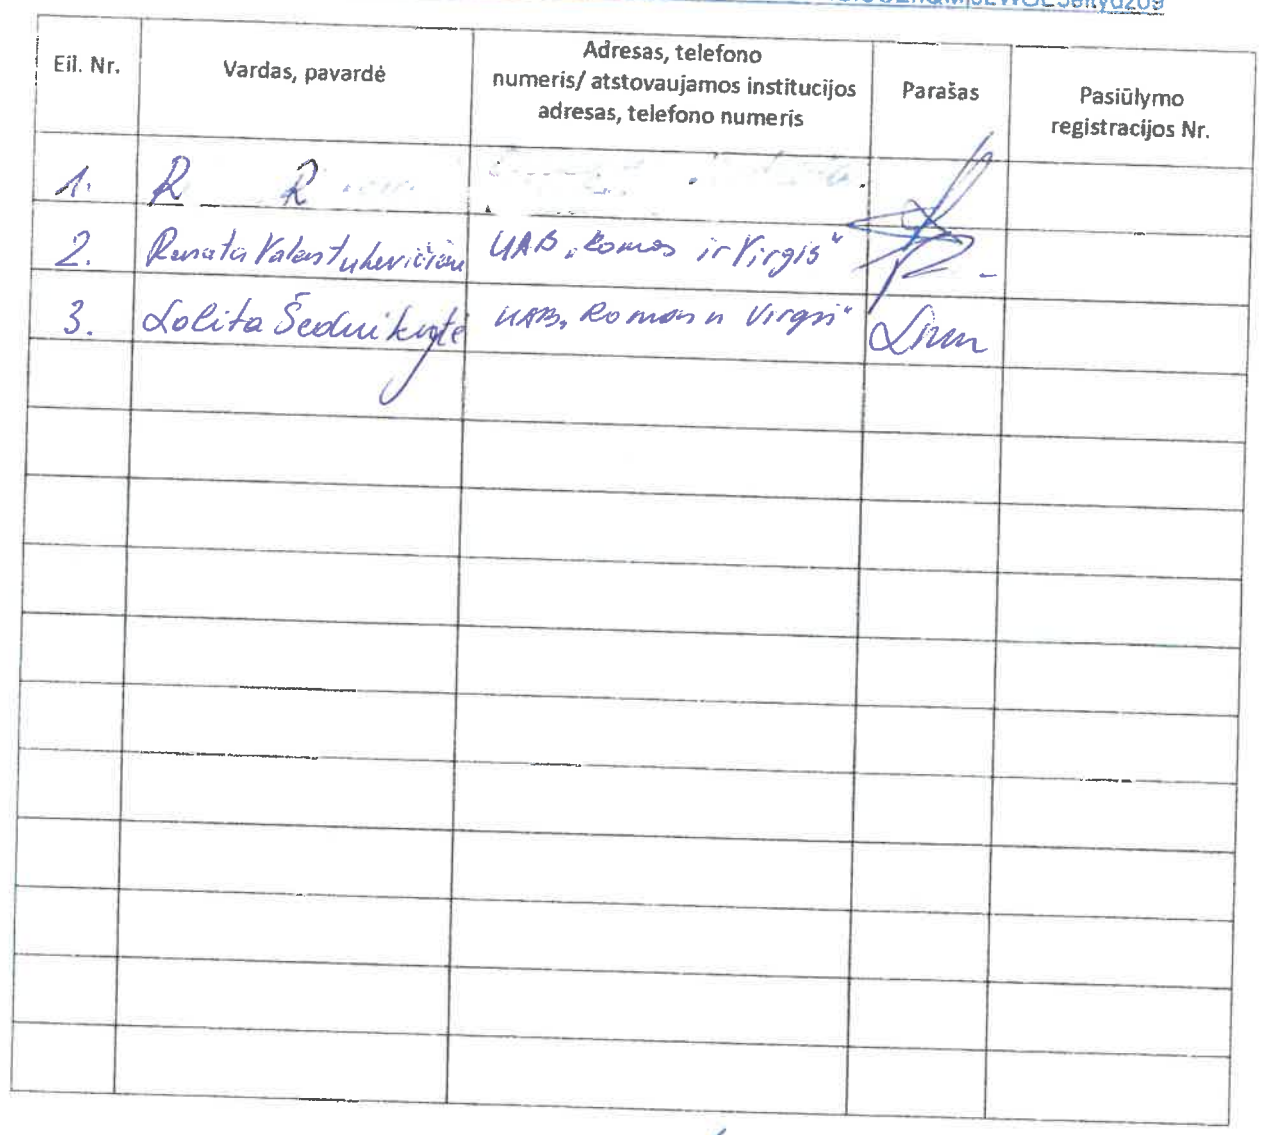 Eil. Nr.
Vardas, pavardė
Adresas, telefono
numeris/ atstovaujamos institucijos
adresas, telefono numeris
Parašas
Pasiūlymo
registracijos Nr.
1. R R
2. Renata UAB „Romos ir Virgis"
3. Lolita Šeduikytė UAB,